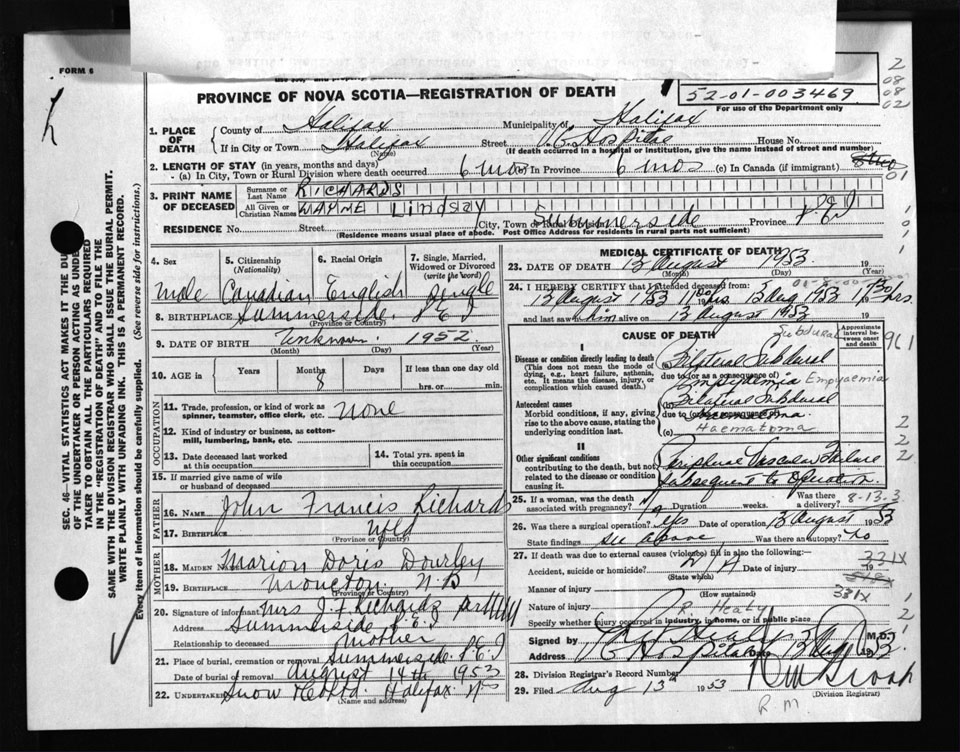 FORM 6
2
08
08
02
PROVINCE OF NOVA SCOTIA—REGISTRATION OF DEATH
52-01-003469
For use of the Department only
1. PLACE OF DEATH
County of Halifax Municipality of Halifax
If in City or Town Halifax (Name) Street V.G. Hospital House No.
(If death occurred in a hospital or institution, give the name instead of street and number)
2. LENGTH OF STAY (in years, months and days)
(a) In City, Town or Rural Division where death occurred 6 mos (b) In Province 6 mos (c) In Canada (if immigrant)
01
3. PRINT NAME OF DECEASED
Surname or Last Name RICHARDS
All Given or Christian Names WAYNE Lindsay
RESIDENCE No. Street City, Town or Rural Summerside Province P.E.I
(Residence means usual place of abode. Post Office Address for residents in rural parts not sufficient)
SEC. 46—VITAL STATISTICS ACT MAKES IT THE DU
OF THE UNDERTAKER OR PERSON ACTING AS UNDER
TAKER TO OBTAIN ALL THE PARTICULARS REQUIRED
IN THE "REGISTRATION OF DEATH" AND TO FILE THE
SAME WITH THE DIVISION REGISTRAR WHO SHALL ISSUE THE BURIAL PERMIT.
WRITE PLAINLY WITH UNFADING INK. THIS IS A PERMANENT RECORD.
Every item of information should be carefully supplied. (See reverse side for instructions.)
4. Sex
5. Citizenship (Nationality)
6. Racial Origin
7. Single, Married, Widowed or Divorced (write the word)
Male Canadian English Single
8. BIRTHPLACE Summerside, P.E.I
(Province or Country)
9. DATE OF BIRTH Unknown 1952
(Month) (Day) (Year)
10. AGE Years Months 8 Days If less than one day old
hrs. or min.
OCCUPATION
11. Trade, profession, or kind of work as spinner, teamster, office clerk, etc. None
12. Kind of industry or business, as cotton-mill, lumbering, bank, etc.
13. Date deceased last worked at this occupation
14. Total yrs. spent in this occupation
15. If married give name of wife or husband of deceased
FATHER
16. Name John Francis Richards
17. Birthplace Nfld
(Province or Country)
MOTHER
18. MAIDEN NAME Marion Doris Dourley
19. BIRTHPLACE Moncton N.B
(Province or Country)
20. Signature of informant Mrs J. F Richards
Address Summerside P.E.I
Relationship to deceased Mother
21. Place of burial, cremation or removal Summerside P.E.I
Date of burial or removal August 14th 1953
22. Undertaker Snow Halifax NS
(Name and address)
MEDICAL CERTIFICATE OF DEATH
23. DATE OF DEATH 13 August 1953 19
(Month) (Day) (Year)
24. I HEREBY CERTIFY that I attended deceased from:
13 August 1953
and last saw him alive on 13 August 1953 19
CAUSE OF DEATH
Approximate interval between onset and death
961
I
Disease or condition directly leading to death
(This does not mean the mode of dying, e.g., heart failure, asthenia, etc. It means the disease, injury, or complication which caused death.)
Subdural
(a) Bilateral Subdural
due to (or as a consequence of)
Empyaemia
Antecedent causes
Morbid conditions, if any, giving rise to the above cause, stating the underlying condition last.
(b) Bilateral Subdural
due to (or as a consequence of)
(c) Haematoma
II
Other significant conditions
contributing to the death, but not related to the disease or condition causing it.
Peripheral Vascular Failure
subsequent to Operation
25. If a woman, was the death associated with pregnancy? Duration weeks. Was there a delivery?
8-13-3
26. Was there a surgical operation? Yes Date of operation 13 August 1953
State findings see above Was there an autopsy? no
27. If death was due to external causes (violence) fill in also the following:
Accident, suicide or homicide? N/A Date of injury 19
(State which)
331X
Manner of injury
(How sustained)
Nature of injury
R. Healy
Specify whether injury occurred in industry, in home, or in public place
Signed by M.D.
Address V.G Hospital Date 13 Aug 1953
28. Division Registrar's Record Number
29. Filed Aug 13th 1953
(Division Registrar)
R.M.